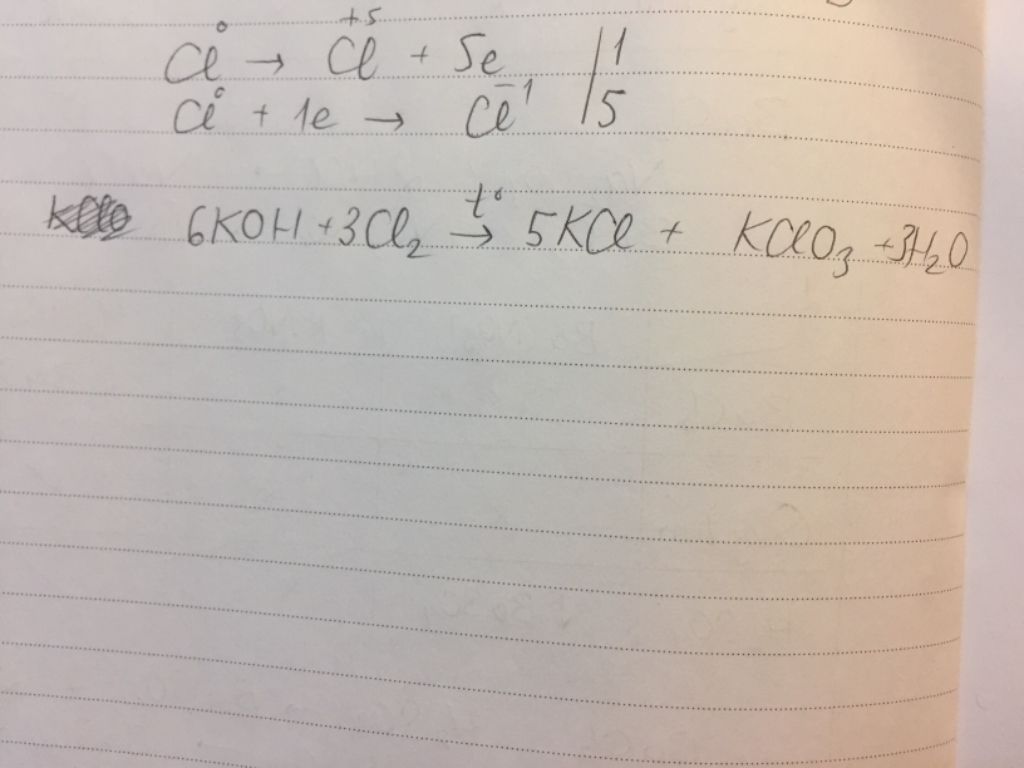 Cl⁰ → Cl⁺⁵ + 5e | 1
Cl⁰ + 1e → Cl⁻¹ | 5
6KOH + 3Cl₂ →t° 5KCl + KClO₃ + 3H₂O